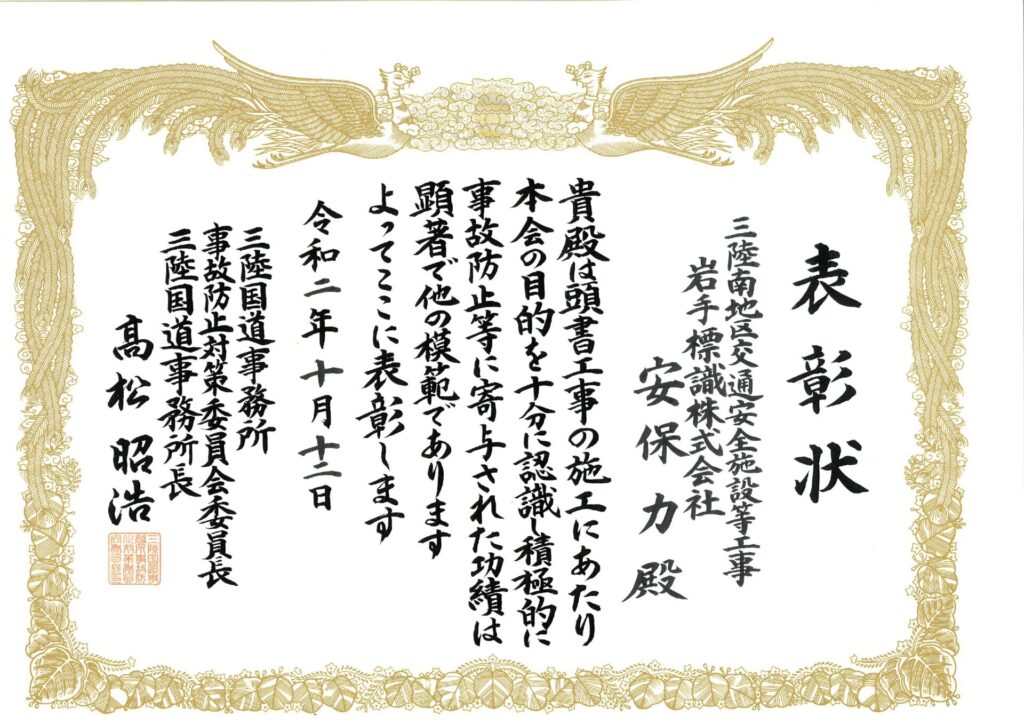 表彰状
三陸南地区交通安全施設等工事
岩手標識株式会社
安保力殿
貴殿は頭書工事の施工にあたり
本会の目的を十分に認識し積極的に
事故防止等に寄与された功績は
顕著で他の模範であります
よってここに表彰します
令和二年十月十二日
三陸国道事務所
事故防止対策委員会委員長
三陸国道事務所長
髙松昭浩